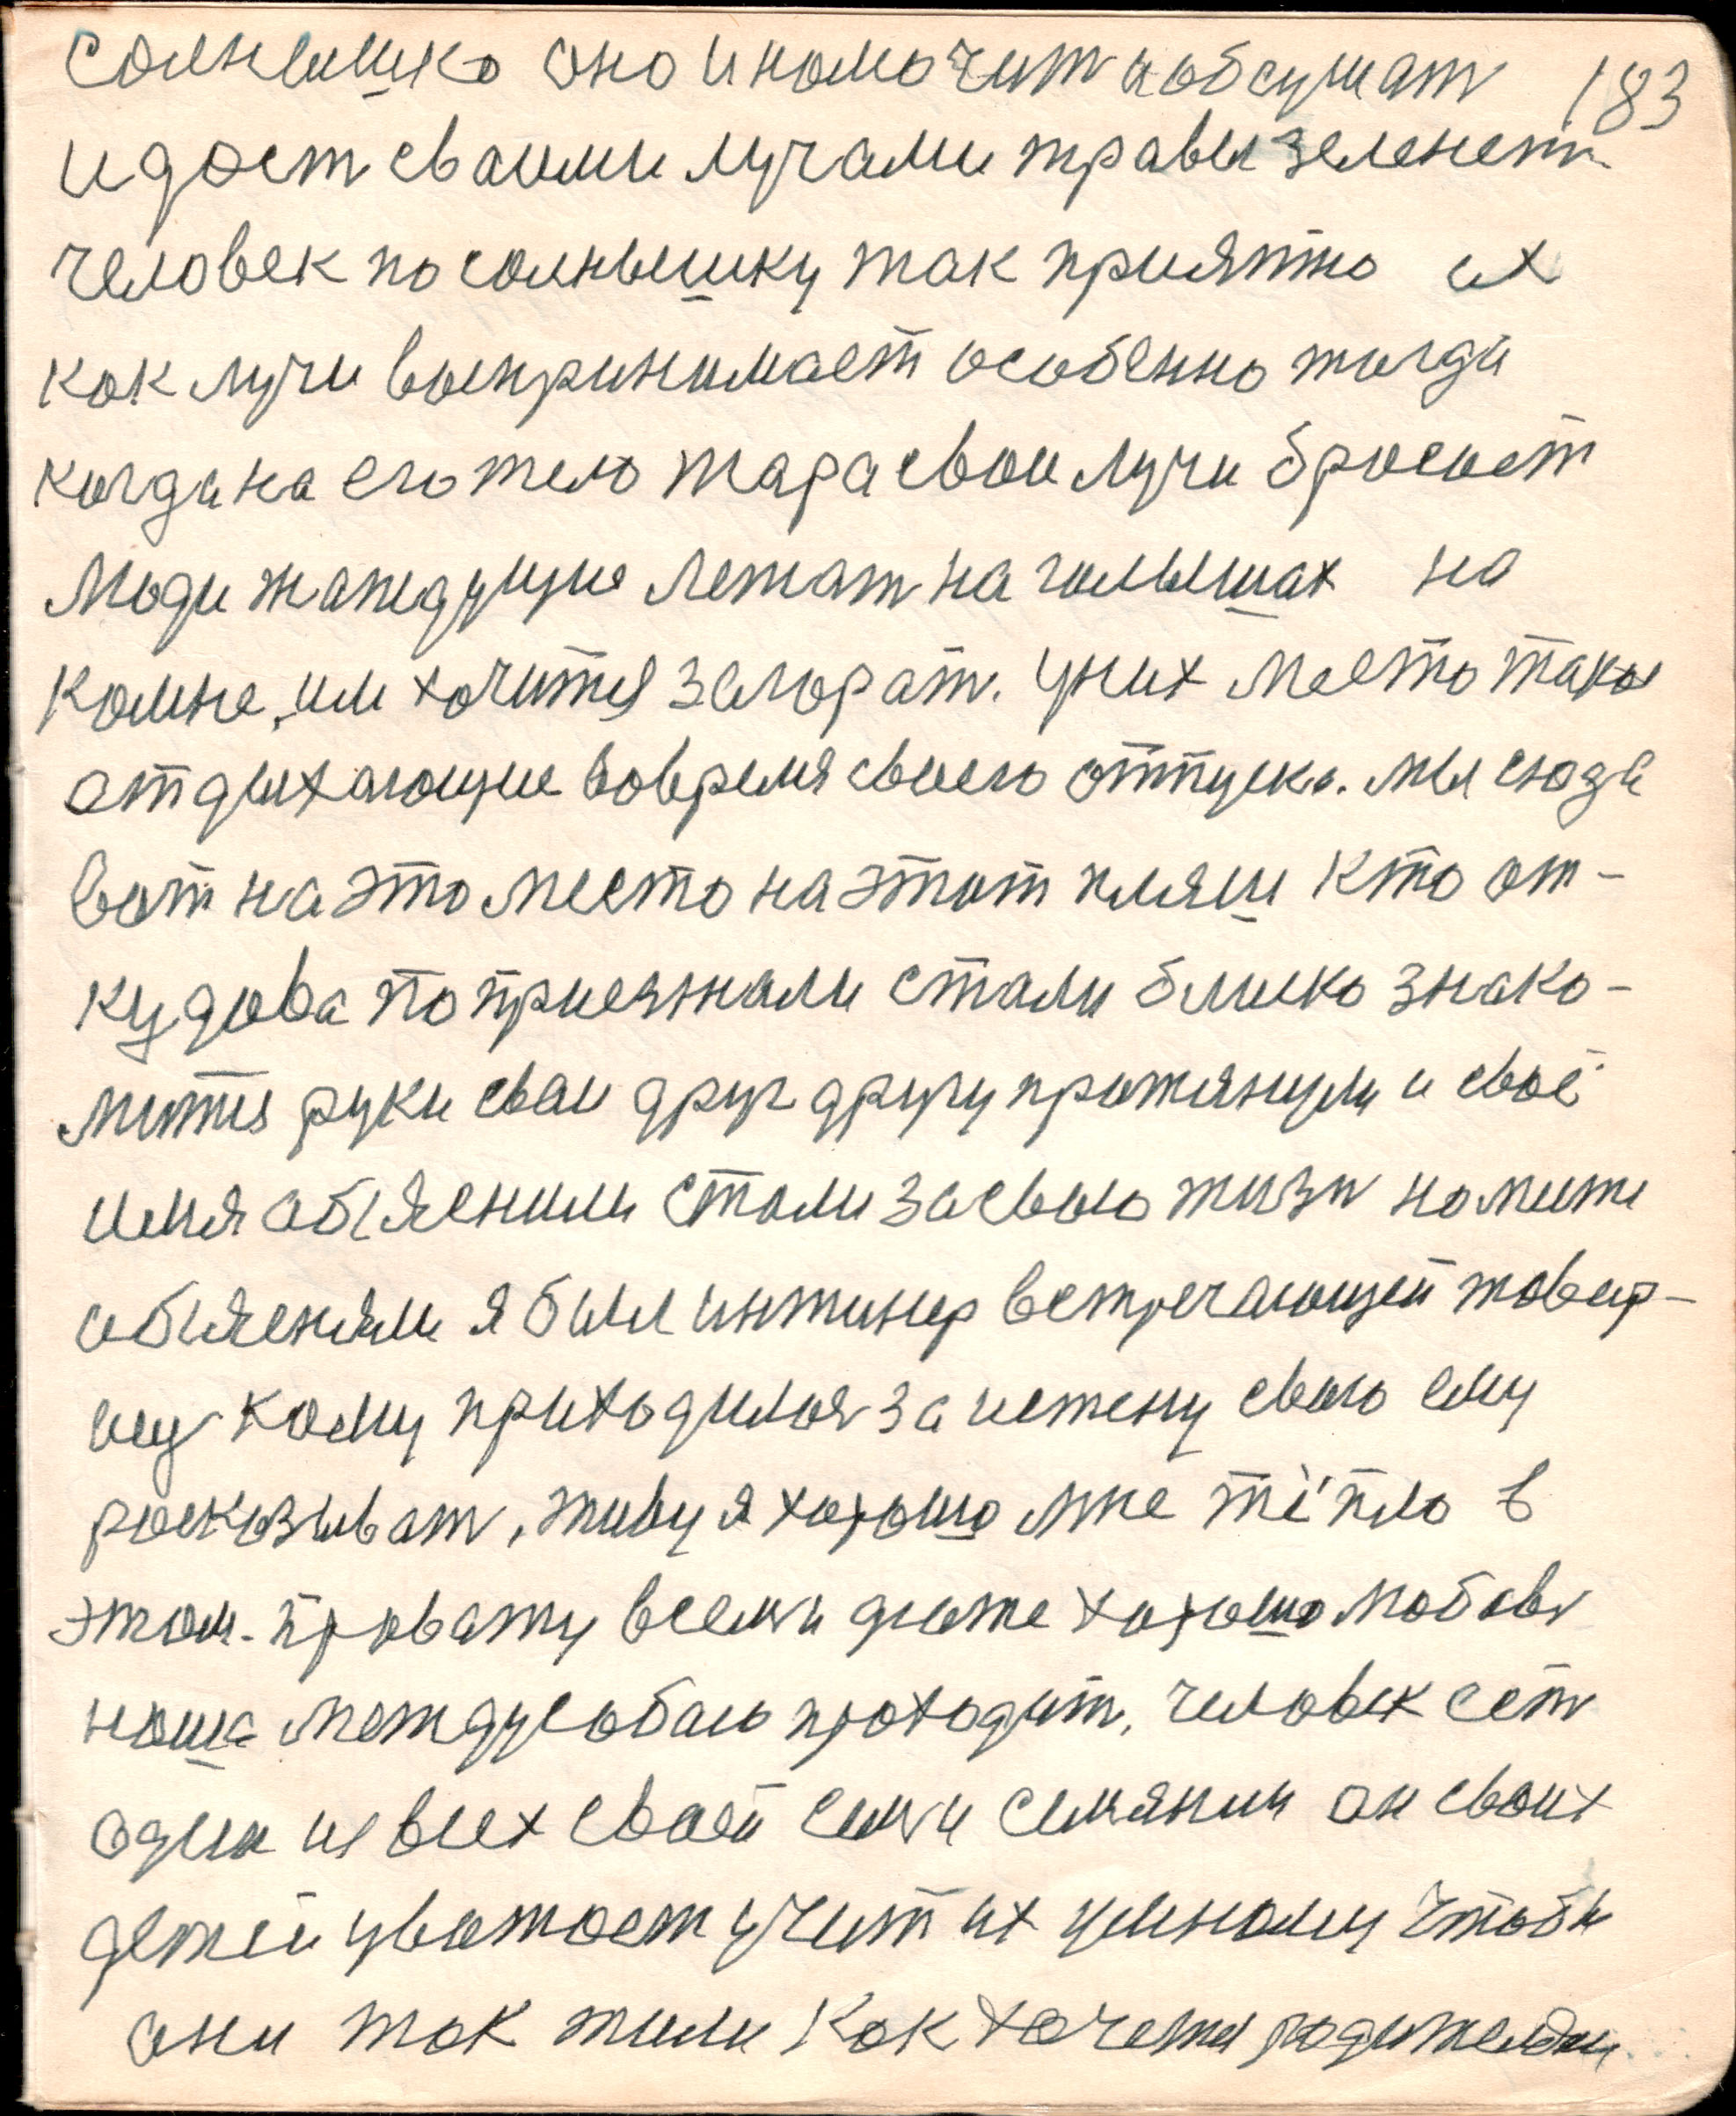 солнышко оно и намочит и обсушат 183
и дает сваими лучами травы зеленеть
человек по солнышку так приятно их
как лучи воспринимает особенно тогда
когда на его тело жара свои лучи бросает
Люди жаждущие лежат на голышах на
камне, им хочится загорат. У них место такое
отдыхающие вовремя своего отпуска. мы сюда
вот на это место на этот пляш кто от-
кудова по приезжали стали блиско знако-
мится руки сваи друг другу протянули и своё
имя обіяснили стали за свою жизн
обіясняли я был инжинер встречающей товар-
ищ кому приходился за истену свою ему
росказыват, живу я хорошо мне тёпло в
этом. кровату всеми даже хорошо любовь
наша между собаю проходит, человек есть
один из всех своей семи семянин он своих
детей уважает учит их умному чтобы
они так жили как хочется родителям